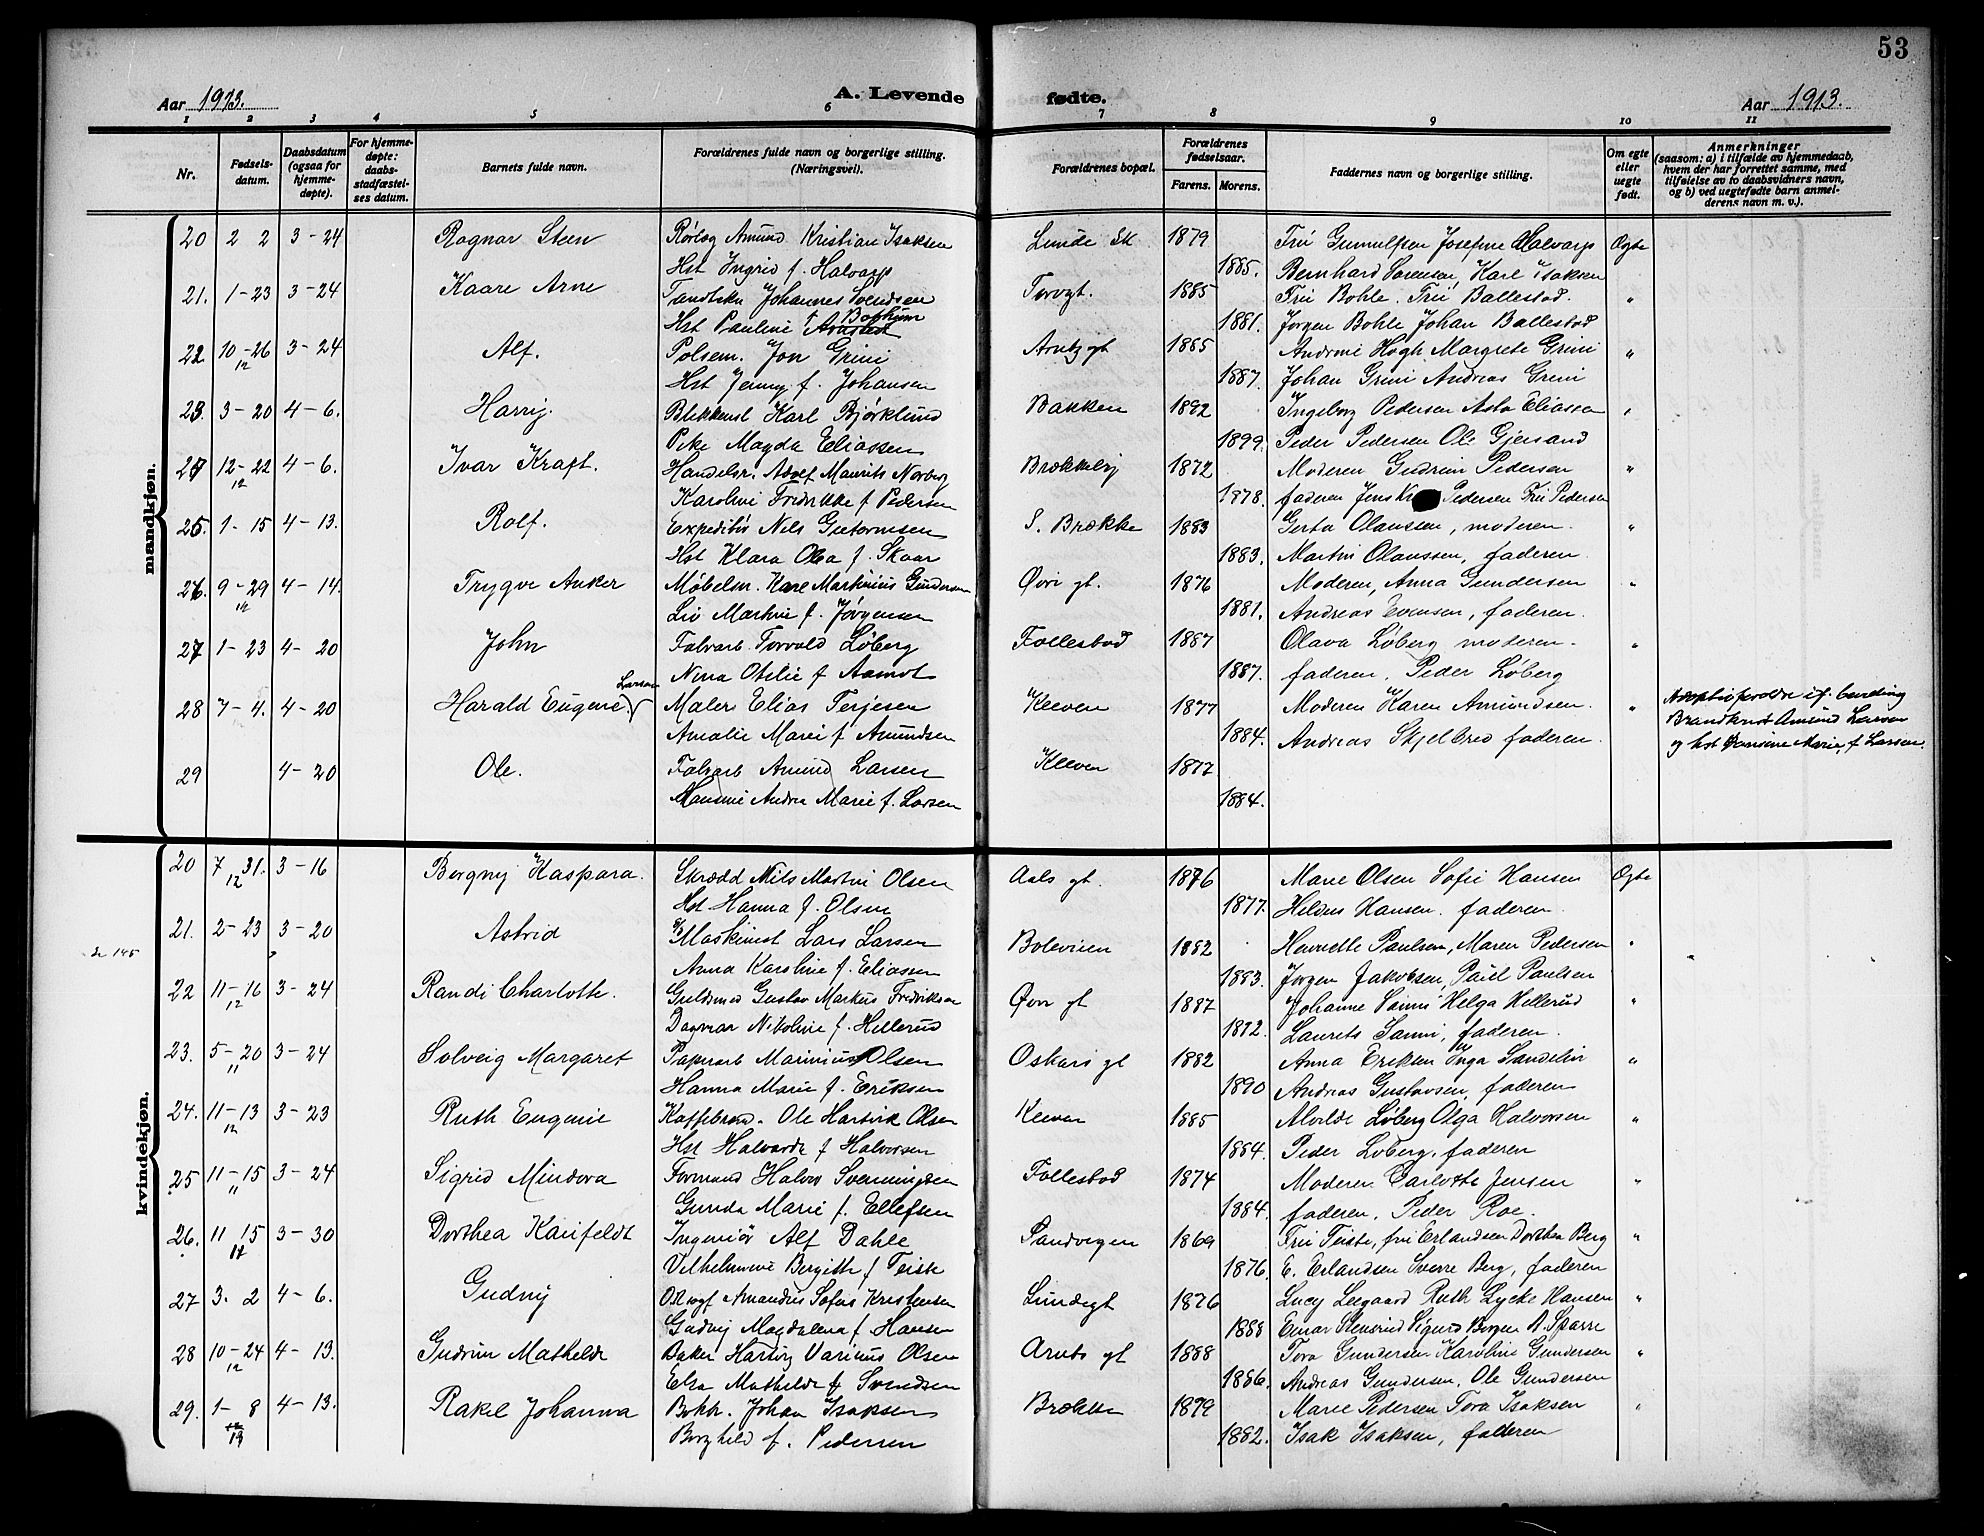 53
Aar 1913.
A. Levende fødte.
Aar 1913.
1 2 3 4 5 6 7 8 9 10 11
Nr.
Fødsels-
datum.
Daabsdatum
(ogsaa for
hjemme-
døpte).
For hjemme-
døpte:
daabs-
stadfæstel-
ses datum.
Barnets fulde navn.
Forældrenes fulde navn og borgerlige stilling.
(Næringsvei).
Forældrenes bopæl.
Forældrenes
fødselsaar.
Farens. Morens.
Faddernes navn og borgerlige stilling.
Om egte
eller
uegte
født.
Anmerkninger
(saasom: a) i tilfælde av hjemmedaab,
hvem der har forrettet samme, med
tilføielse av to daabsvidners navn,
og b) ved uegtefødte barn anmel-
derens navn m. v.).
mandkjøn.
20 2 2 3-24 Ragnar Steen Rørlæg Amund Kristian Isaksen Lunde Sk 1879 Fru Gunnulfsen Josefine Halvarp Egte
Hst Ingrid f. Halvarp 1885. Bernhard Sørensen, Karl Isaksen
21. 1-23 3-24 Kaare Arne Johannes Svendsen Torvgt. 1885 Fru Bohle. Fru Ballestad. "
Hst Pauline f 1881. Jørgen Bohle Johan Ballestad
22 10-26 12 3-24 Alf. Polsem. Jon Grini Arntz gt 1885 Andrine Høgh Margrete Grini "
Hst Jenny f. Johansen 1887. Johan Grini Andreas Grini
23. 3-20 4-6. Harry. Blikkensl Karl Bjørklund Bakken 1892 Ingeborg Pedersen Asta Eliassen
Magda Eliassen 1899. Peder Pedersen Ole Gjersand
24 12-22 12 4-6. Ivar Kraft. Handelsr. Adolf Maurits Norberg Brækkebg 1872 Moderen Gudrun Pedersen "
Karoline Fredrikke f Pedersen 1878. faderen Jens Pedersen Fru Pedersen
25. 1-15 4-13. Rolf. Expeditør Nels Guttormsen S. Brække 1883 Gerta Olaussen, moderen. "
Hst Klara Olea f. Skaar 1883. Martin Olaussen, faderen.
26. 9-29 12 4-14. Trygve Anker Møbelsn. Karl Markinius Gundersen Øvre gt. 1876 Moderen, Anna Gundersen "
Liv Martine f. Jørgensen 1881. Andreas Evensen, faderen.
27 1-23 4-20 John Fabrarb. Torvald Løberg Follestad 1887 Olava Løberg moderen. "
Nina Otilie f Aamot 1887. faderen. Peder Løberg
Larsen
28 7-4. 4-20 Harald Eugene. Maler Elias Terjesen Kleven 1877 Moderen Karen Amundsen. "
Amalie Marie f. Amundsen 1884. Andreas Skjelbred faderen.
Brandknst Amund Larsen
og hst Marie, f Larsen.
29 4-20 Ole. Fabrarb Amund Larsen Kleven 1877
Andrea Marie f. Larsen 1884.
kvindekjøn.
20 7 31. 12 3-16 Borgny Kaspara. Skrædd Nils Martin Olsen Aals gt. 1876 Marie Olsen Sofie Hansen Egte
Hst Hanna f. Olsen 1877. Hansen. faderen.
21. 2-23 3-20 Astrid Maskinist Lars Larsen Boleveien 1882 Henriette Paulsen, Maren Pedersen "
Anna Karoline f. Eliassen 1883. Jørgen Jakobsen, Paul Paulsen
22 11-16 12 3-24 Randi Charlotte. Guldsmed Gustav Markus Fredriksen Øvre gt 1887 Johanne Helga Hellerud "
Dagmar Nikoline f. Hellerud 1892. Laurits faderen.
23. 5-20 11 3-24 Solveig Margaret Papirarb Marinius Olsen Oskars gt 1882 Anna Eriksen Inga Sandelin "
Hanna Marie f. Eriksen 1890 Andreas Gustavsen, faderen
24. 11-13 12 3-23 Ruth Eugenie Kaffebrænd. Ole Hartvik Olsen Kleven 1885 Alvilde Løberg Olga Halvorsen "
Hst Halvarda f Halvorsen 1884. Peder Løberg, faderen
25 11-15 11 3-24 Sigrid Mindora Formand Halvor Svenningsen Follestad 1874 Moderen Carlotte Jensen "
Gunda Marie f. Ellefsen 1884. faderen. Peder Roe.
26. 11 15 3-30 Dorthea Kaufeldt Ingeniør Alf Dahle Sandvegen 1869 Fru Teiste, fru Erlandsen Dorthea Berg "
Vilhelmine Bergitte f Teiste 1876. E. Erlandsen Sverre Berg, faderen
27 3. 2 4-6. Gudny Amandus Sofus Kristensen Lundegt 1876 Lucy Leegaard Ruth Lycke Hansen "
Gudvy Magdalena f Hansen 1888 Einar Sigurd Borgen A. Sparre
28 10-24 12 4-13. Gudrun Mathilde Baker Hartvig Varinus Olsen Arnts gt 1888 Tora Gundersen Karoline Gundersen "
Elsa Mathilde f Svendsen 1886. Andreas Gundersen, Ole Gundersen
29. 1-8 4-13. Rakel Johanna Bokh. Johan Isaksen Brække 1879 Marie Pedersen Tora Isaksen "
Borghild f. Pedersen 1882. Isak Isaksen, faderen